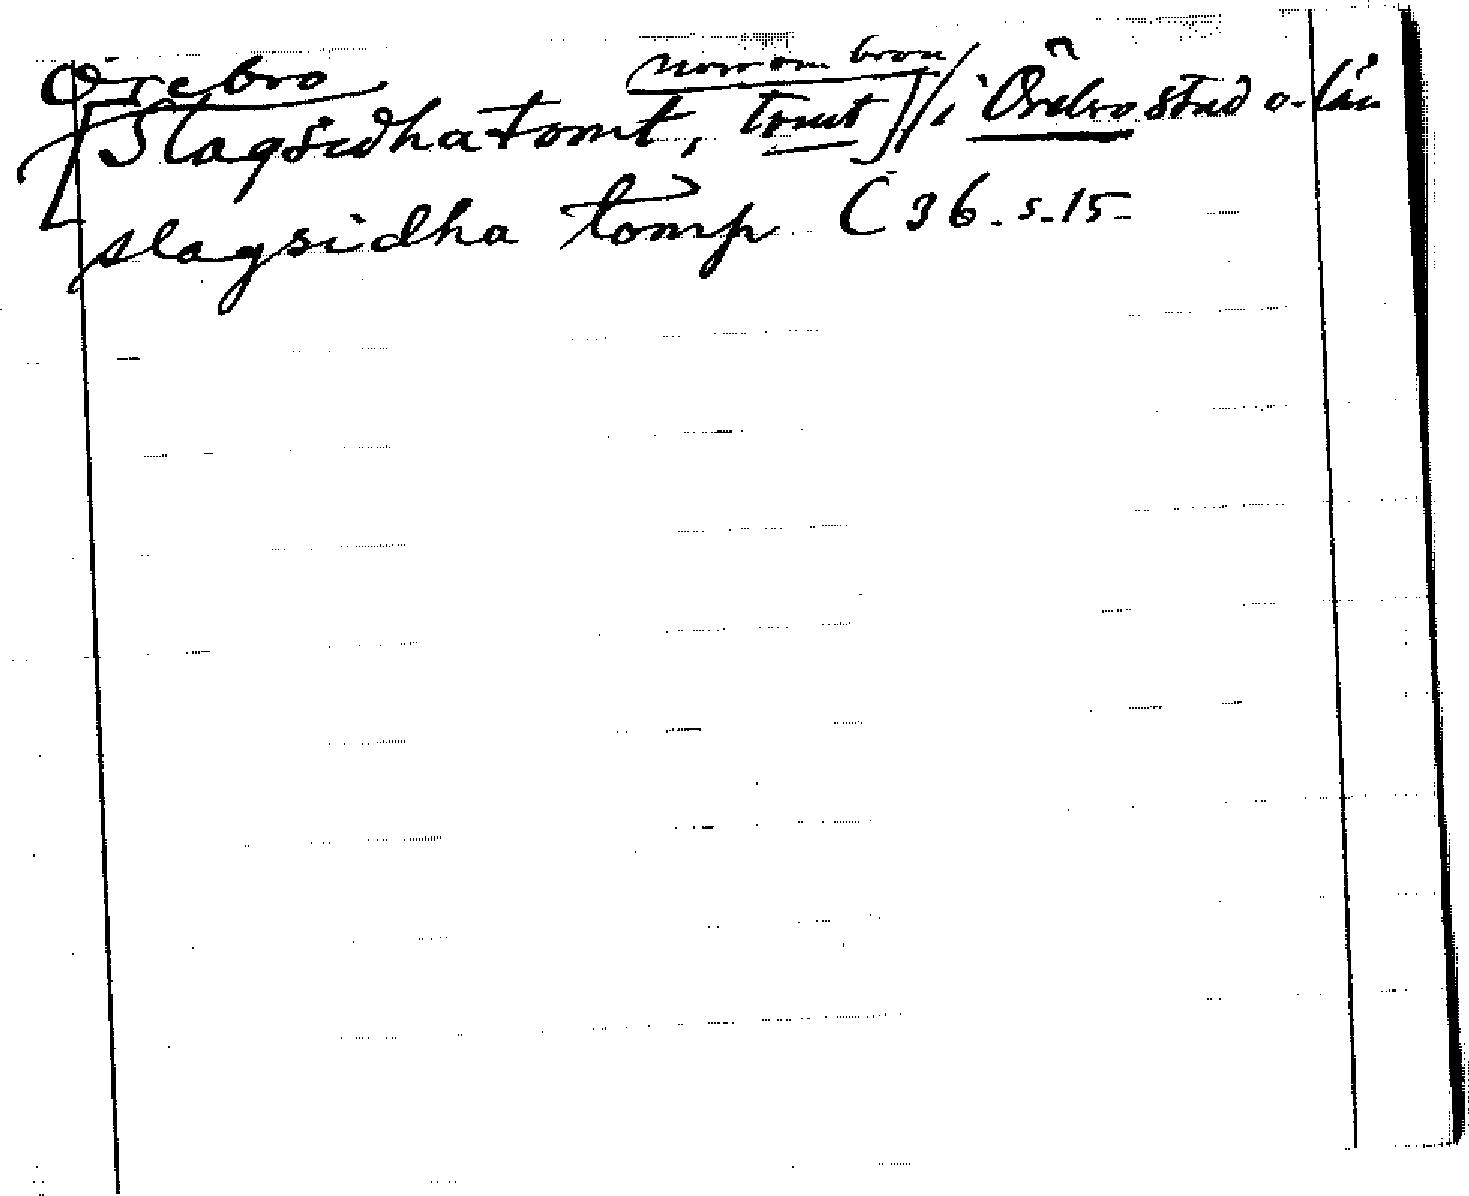 Örebro
[Slagsidhatomt, tomt] norr om bron / i Örebro stad o. län
slagsidha tomp C 36. s. 15